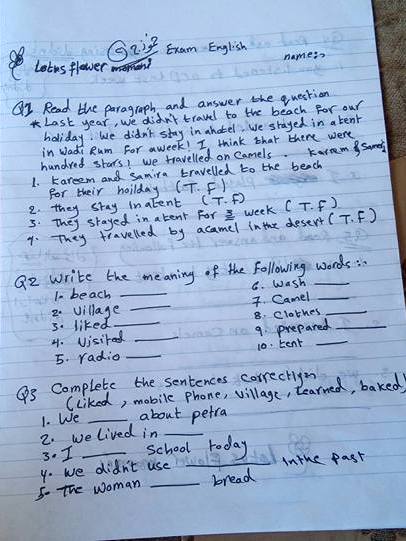 نموذج 2 Exam English
Lotus flower name:-
Q1 Read the paragraph and answer the question
* Last year, we didn't travel to the beach for our
holiday. We didn't stay in ahotel. We stayed in a tent
in Wadi Rum for aweek! I think that there were
hundred stars! we travelled on Camels. Kareem & Samira
1. Kareem and Samira travelled to the beach
for their hoilday (T. F)
2. they stay In atent (T. F)
3. They stayed in atent for week (T. F)
4. They travelled by acamel in the desert (T. F)
Q2 write the meaning of the following words:-
1. beach ____ 6. wash ____
2. Village ____ 7. Camel ____
3. liked ____ 8. Clothes ____
4. Visited ____ 9. prepared ____
5. radio ____ 10. tent ____
Q3 Complete the sentences correctly:-
(Liked, mobile Phone, Village, Learned, baked)
1. We ____ about petra
2. we Lived in ____
3. I ____ School today
4. we didn't use ____ in the past
5. The woman ____ bread